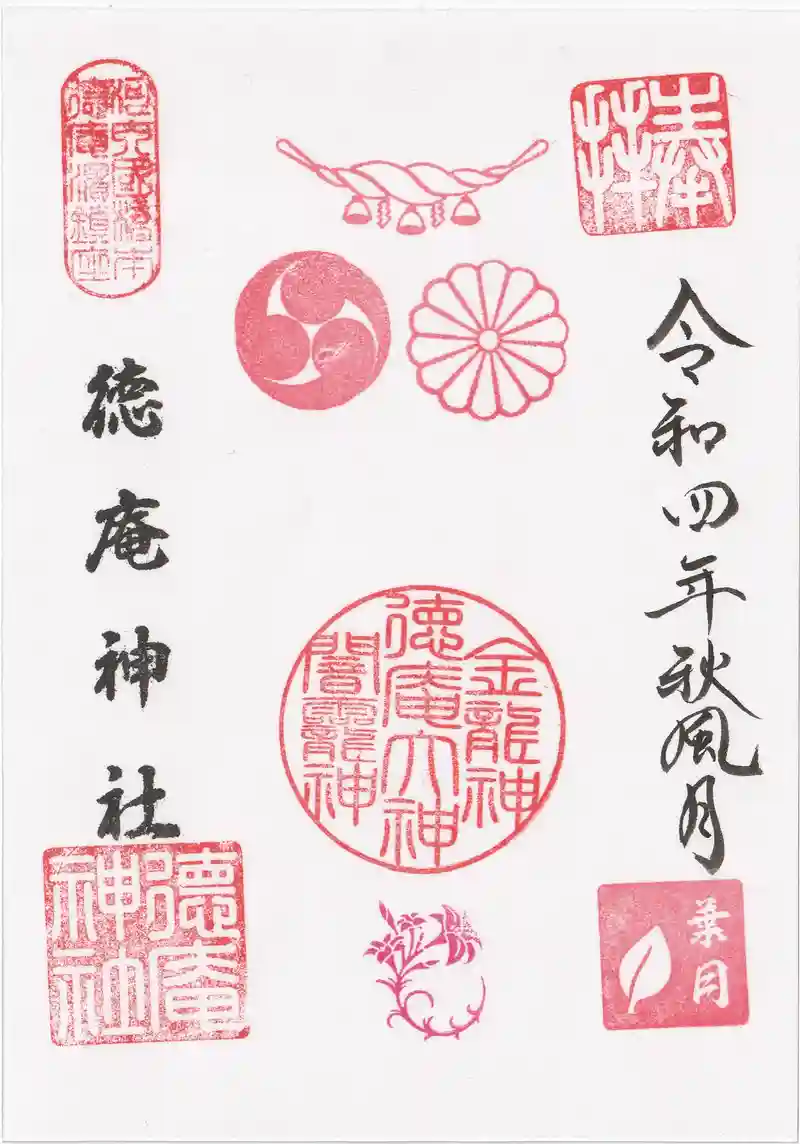 奉拝
令和四年秋風月
葉月
金龍神
徳庵大神
闇龗神
徳庵濱鎮座
徳庵神社
徳庵
神社